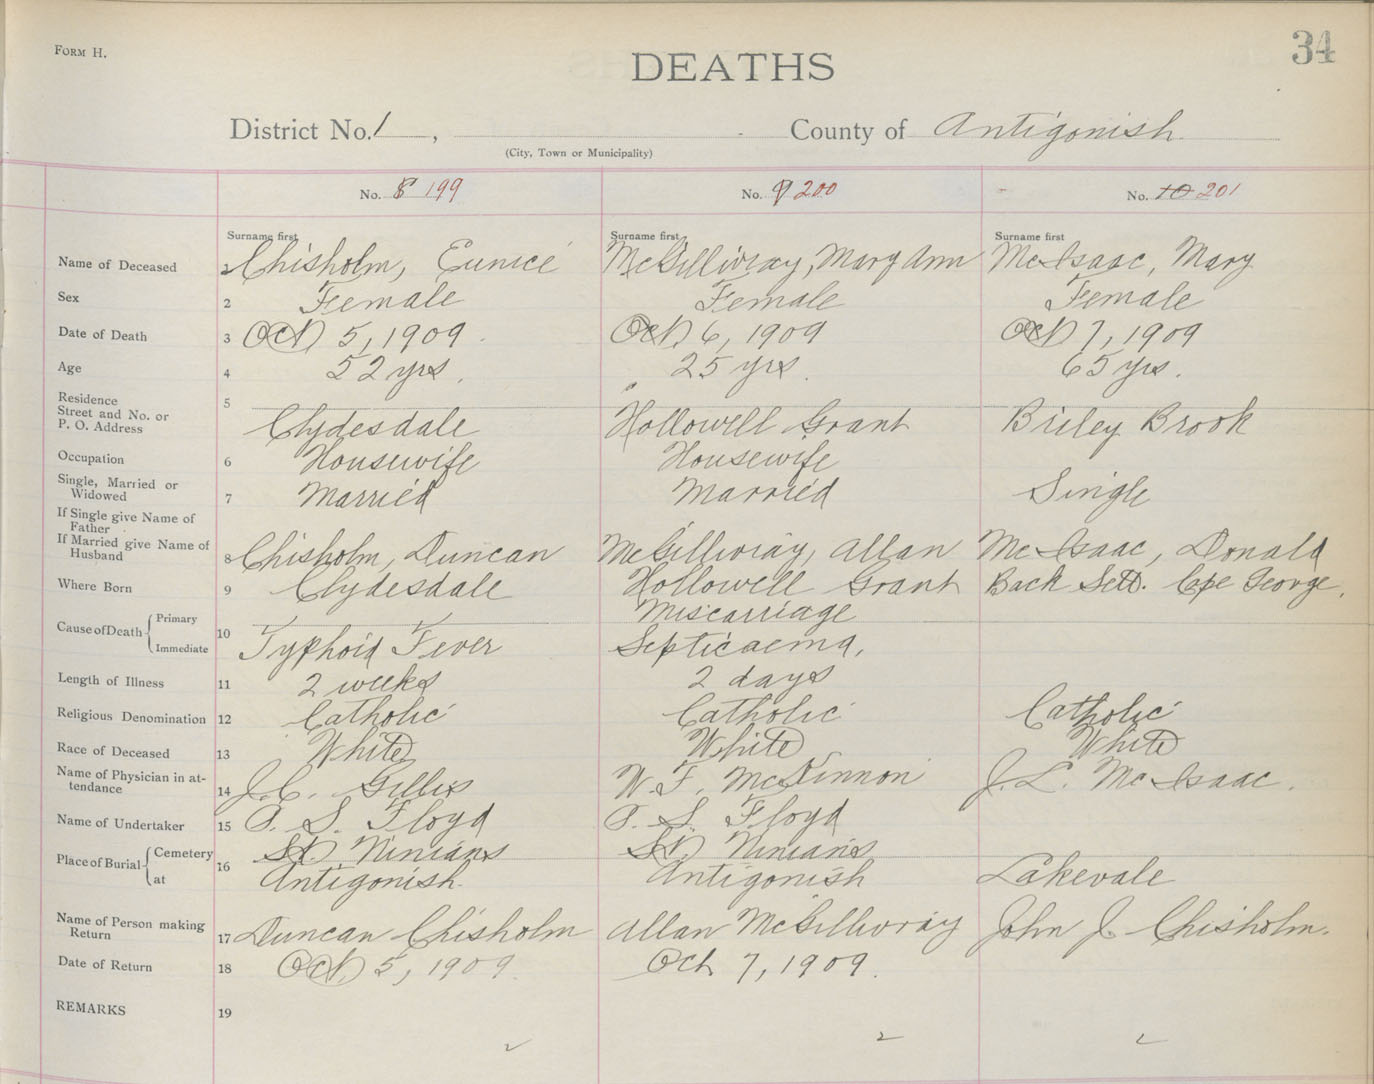 FORM H.
34
DEATHS
District No. 1 , County of Antigonish
(City, Town or Municipality)
No. 8 199 No. 9 200 No. 10 201
Surname first Surname first Surname first
Name of Deceased 1 Chisholm, Eunice McGillivray, Mary Ann McIsaac, Mary
Sex 2 Female Female Female
Date of Death 3 Oct 5, 1909 Oct 6, 1909 Oct 7, 1909
Age 4 52 yrs. 25 yrs. 65 yrs.
Residence 5
Street and No. or
P. O. Address Clydesdale Hollowell Grant Briley Brook
Occupation 6 Housewife Housewife
Single, Married or
Widowed 7 Married Married Single
If Single give Name of
Father
If Married give Name of
Husband 8 Chisholm, Duncan McGillivray, Allan McIsaac, Donald
Where Born 9 Clydesdale Hollowell Grant Back Sett. Cpe George,
Cause of Death Primary 10 Miscarriage
Immediate Typhoid Fever Septicaema,
Length of Illness 11 2 weeks 2 days
Religious Denomination 12 Catholic Catholic Catholic
Race of Deceased 13 White White White
Name of Physician in at-
tendance 14 J.C. Gillis W. F. McKinnon J. L. McIsaac.
Name of Undertaker 15 P. S. Floyd P. S. Floyd
Place of Burial Cemetery 16 St. Ninians St. Ninians
at Antigonish. Antigonish Lakevale
Name of Person making
Return 17 Duncan Chisholm Allan McGillivray John J. Chisholm.
Date of Return 18 Oct. 5, 1909 Oct 7, 1909.
REMARKS 19